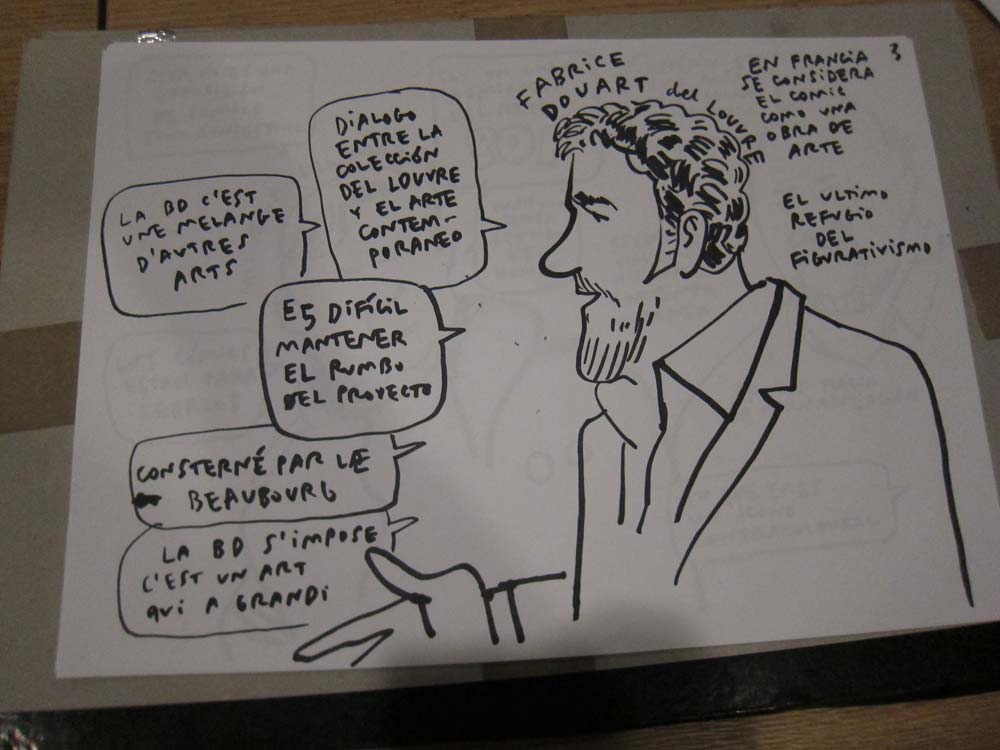 3
FABRICE
DOUART del LOUVRE
EN FRANCIA
SE CONSIDERA
EL COMIC
COMO UNA
OBRA DE
ARTE
EL ULTIMO
REFUGIO
DEL
FIGURATIVISMO
DIALOGO
ENTRE LA
COLECCIÓN
DEL LOUVRE
Y EL ARTE
CONTEM-
PORANEO
LA BD C'EST
UNE MELANGE
D'AUTRES
ARTS
ES DIFÍCIL
MANTENER
EL RUMBO
DEL PROYECTO
CONSTERNÉ PAR LE
BEAUBOURG
LA BD S'IMPOSE
C'EST UN ART
QUI A GRANDI